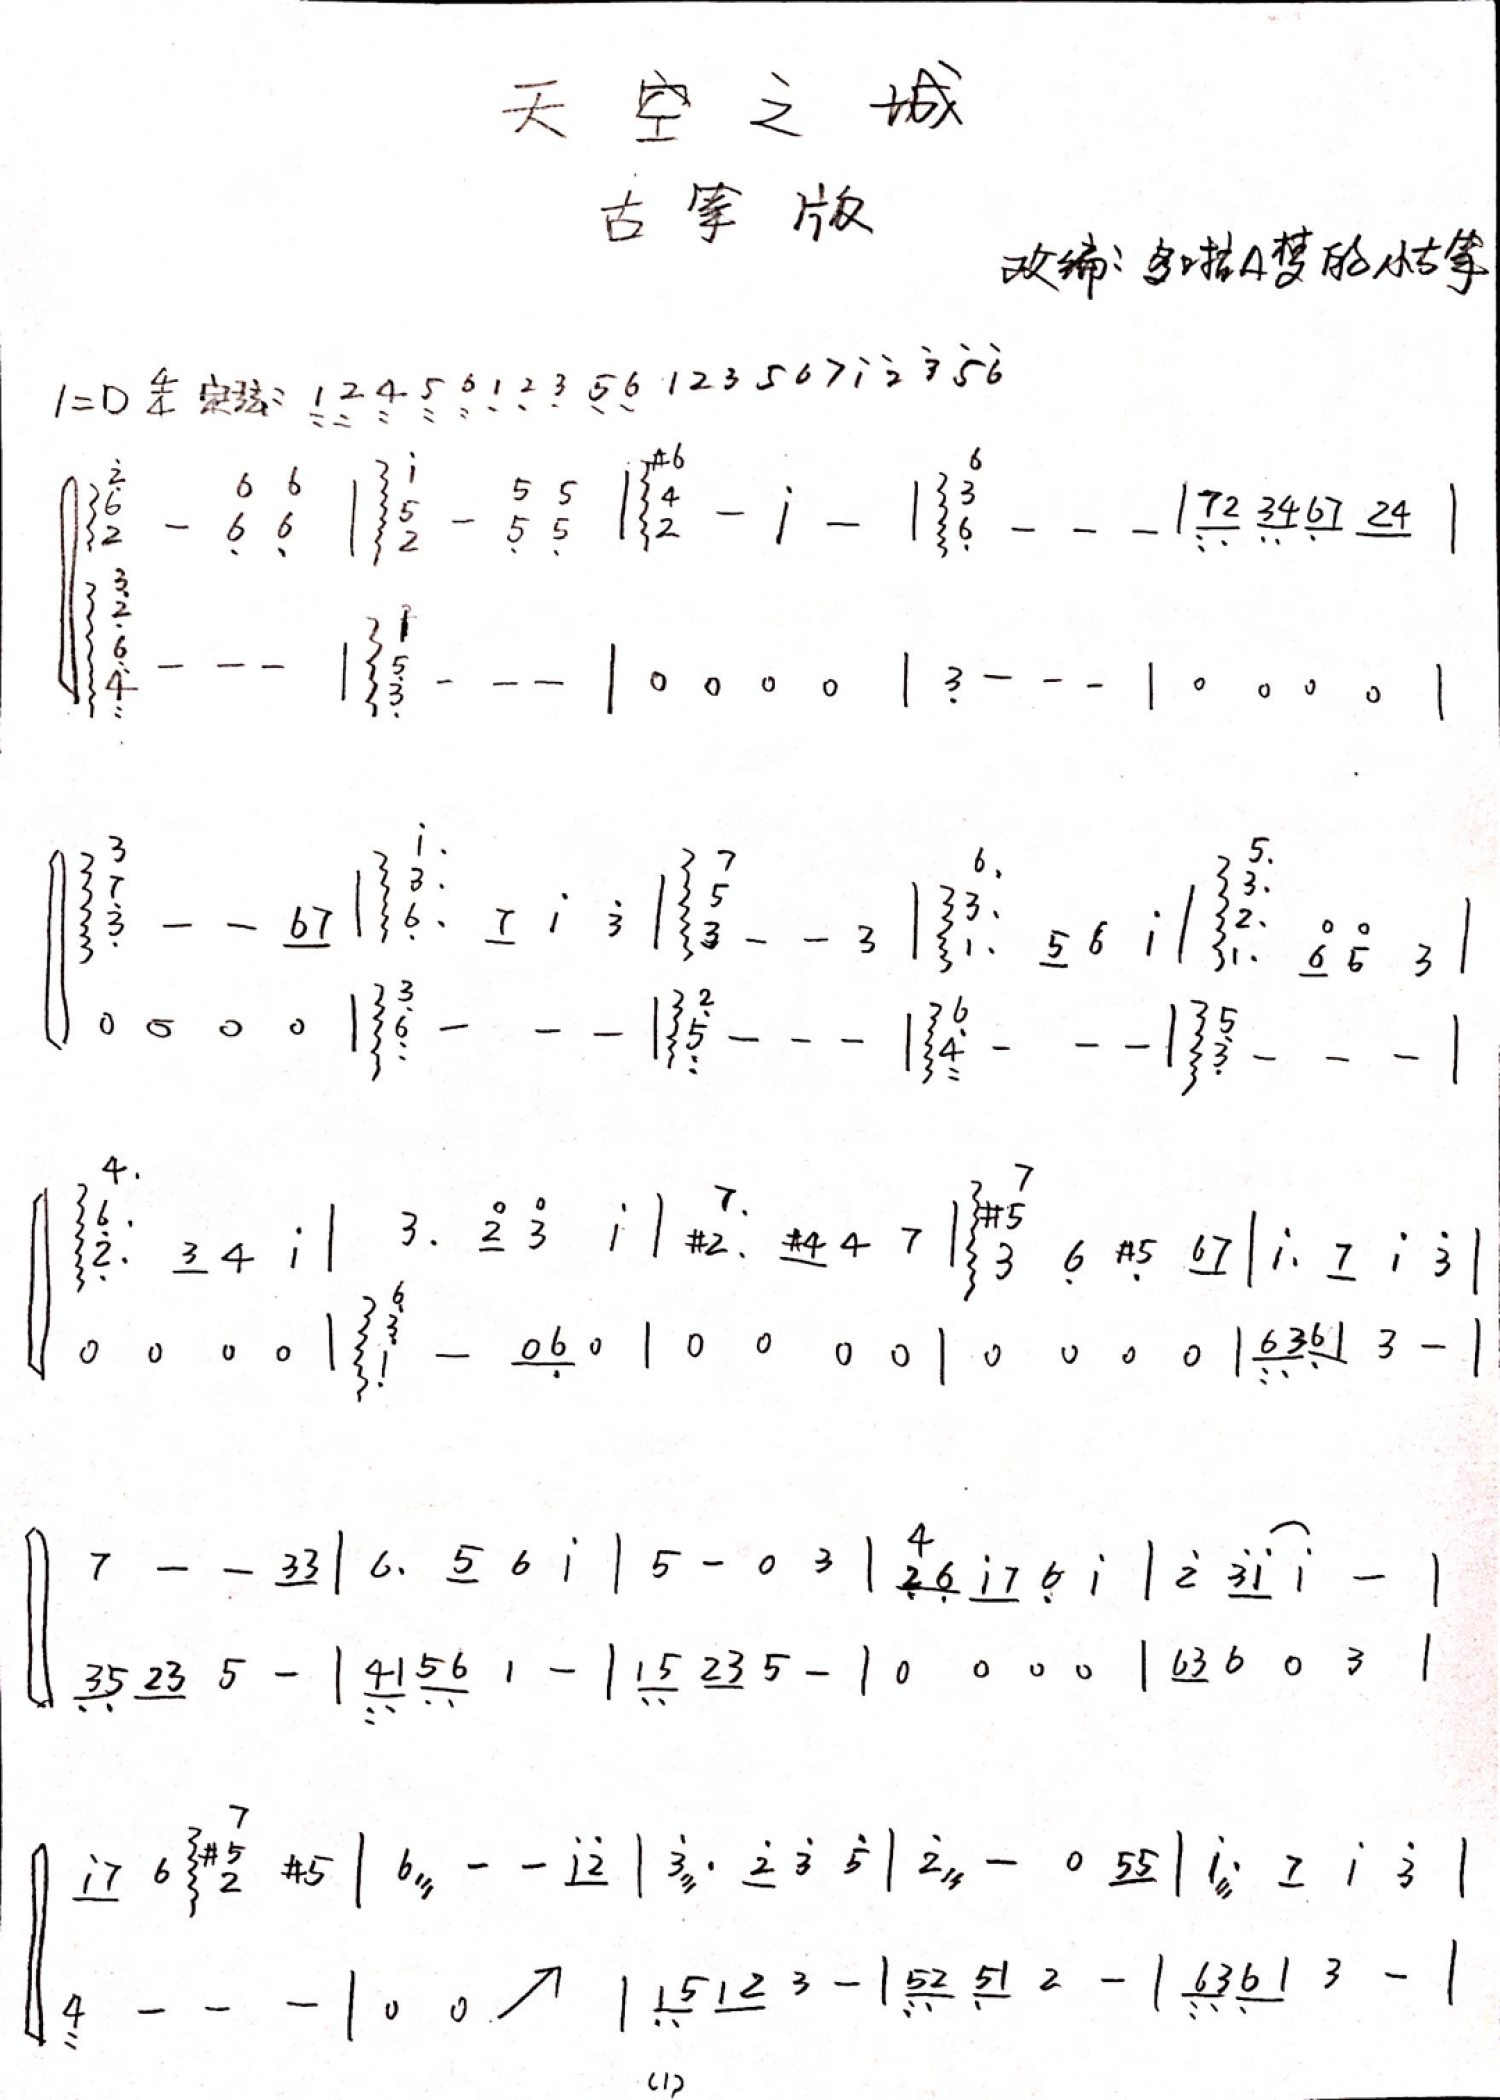 天空之城
古筝版
改编：多啦A梦的小古筝
1=D 4/4 定弦：1 2 4 5 6 1 2 3 5 6 1 2 3 5 6 7 i 2 3 5 6
2 6 2 - 6 6 6 6 | i 5 2 - 5 5 5 5 | #6 4 2 - i - | 6 3 6 - - - | 72 34 67 24 |
3 2 6 4 - - - | 1 5 3 - - - | 0 0 0 0 | 3 - - - | 0 0 0 0 |
3 7 3 - - 67 | i. 3. 6. 7 i 3 | 7 5 3 - - 3 | 6. 3. 1. 5 6 i | 5. 3. 2. 1. 6 5 3 |
0 0 0 0 | 3 6 - - - | 2 5 - - - | 6 4 - - - | 5 3 - - - |
4. 6. 2. 3 4 i | 3. 2 3 i | 7. #2. #4 4 7 | 7 #5 3 6 #5 67 | i. 7 i 3 |
0 0 0 0 | 6 3 1 - 06 0 | 0 0 0 0 | 0 0 0 0 | 6361 3 - |
7 - - 33 | 6. 5 6 i | 5 - 0 3 | 4 26 i7 6 i | 2 3i i - |
35 23 5 - | 41 56 1 - | 15 23 5 - | 0 0 0 0 | 63 6 0 3 |
i7 6 7 #5 2 #5 | 6 - - i2 | 3. 2 3 5 | 2 - 0 55 | i. 7 i 3 |
4 - - - | 0 0 ↗ | 15 12 3 - | 52 51 2 - | 6361 3 - |
(1)